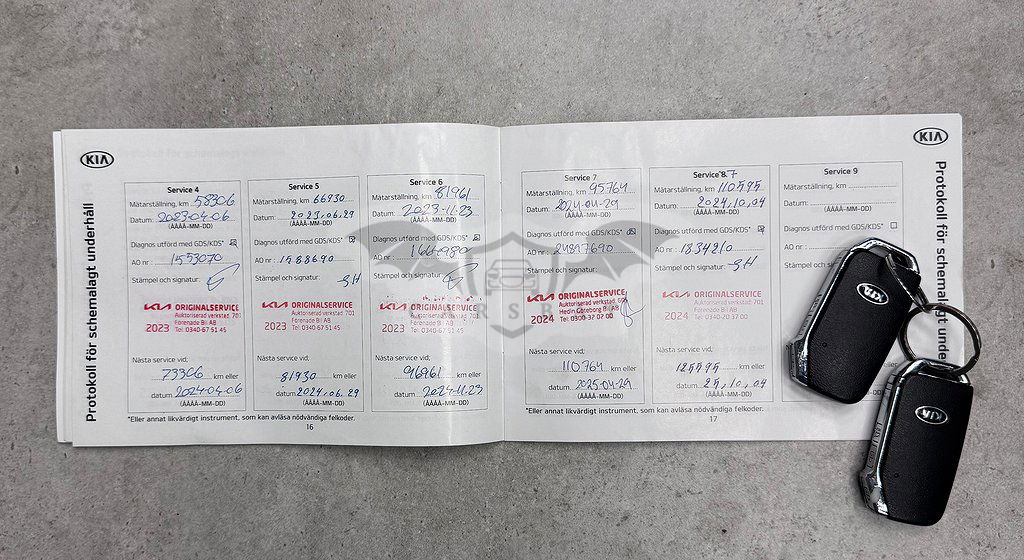 KIA
Protokoll för schemalagt underhåll
Service 4
Mätarställning, km 58306
Datum: 2023-04-06
(ÅÅÅÅ-MM-DD)
Diagnos utförd med GDS/KDS*
AO nr: 1553070
Stämpel och signatur:
KIA ORIGINALSERVICE
Auktoriserad verkstad 701
Förenade Bil AB
2023 Tel: 0340-67 51 45
Nästa service vid;
73306 km eller
datum 2024-04-06
(ÅÅÅÅ-MM-DD)
Service 5
Mätarställning, km 66930
Datum: 2023,06,29
(ÅÅÅÅ-MM-DD)
Diagnos utförd med GDS/KDS*
AO nr: 1588690
Stämpel och signatur: SH
KIA ORIGINALSERVICE
Auktoriserad verkstad 701
Förenade Bil AB
2023 Tel: 0340-67 51 45
Nästa service vid;
81930 km eller
datum 2024,06,29
(ÅÅÅÅ-MM-DD)
Service 6
Mätarställning, km 81961
Datum: 2023-11-23
(ÅÅÅÅ-MM-DD)
Diagnos utförd med GDS/KDS*
AO nr:
Stämpel och signatur:
KIA ORIGINALSERVICE
Auktoriserad verkstad 701
Förenade Bil AB
2023 Tel: 0340-67 51 45
Nästa service vid;
96961 km eller
datum 2024-11-23
(ÅÅÅÅ-MM-DD)
*Eller annat likvärdigt instrument, som kan avläsa nödvändiga felkoder.
16
KIA
Protokoll för schemalagt unde
Service 7
Mätarställning, km 95764
Datum: 2024-04-29
(ÅÅÅÅ-MM-DD)
Diagnos utförd med GDS/KDS*
AO nr: 24897690
Stämpel och signatur:
KIA ORIGINALSERVICE
Auktoriserad verkstad
Hedin Göteborg Bil AB
2024 Tel: 0300-32 02 00
Nästa service vid;
110764 km eller
datum 2025-04-29
(ÅÅÅÅ-MM-DD)
Service 8.7
Mätarställning, km 110595
Datum: 2024,10,04
(ÅÅÅÅ-MM-DD)
Diagnos utförd med GDS/KDS*
AO nr: 1834210
Stämpel och signatur: SH
KIA ORIGINALSERVICE
Auktoriserad verkstad 701
Förenade Bil AB
2024 Tel: 0340-20 37 00
Nästa service vid;
125595 km eller
datum 25,10,04
(ÅÅÅÅ-MM-DD)
Service 9
Mätarställning, km
Datum:
(ÅÅÅÅ-MM-DD)
Diagnos utförd med GDS/KDS*
AO nr:
Stämpel och
*Eller annat likvärdigt instrument, som kan avläsa nödvändiga felkoder.
17
KIA
KIA